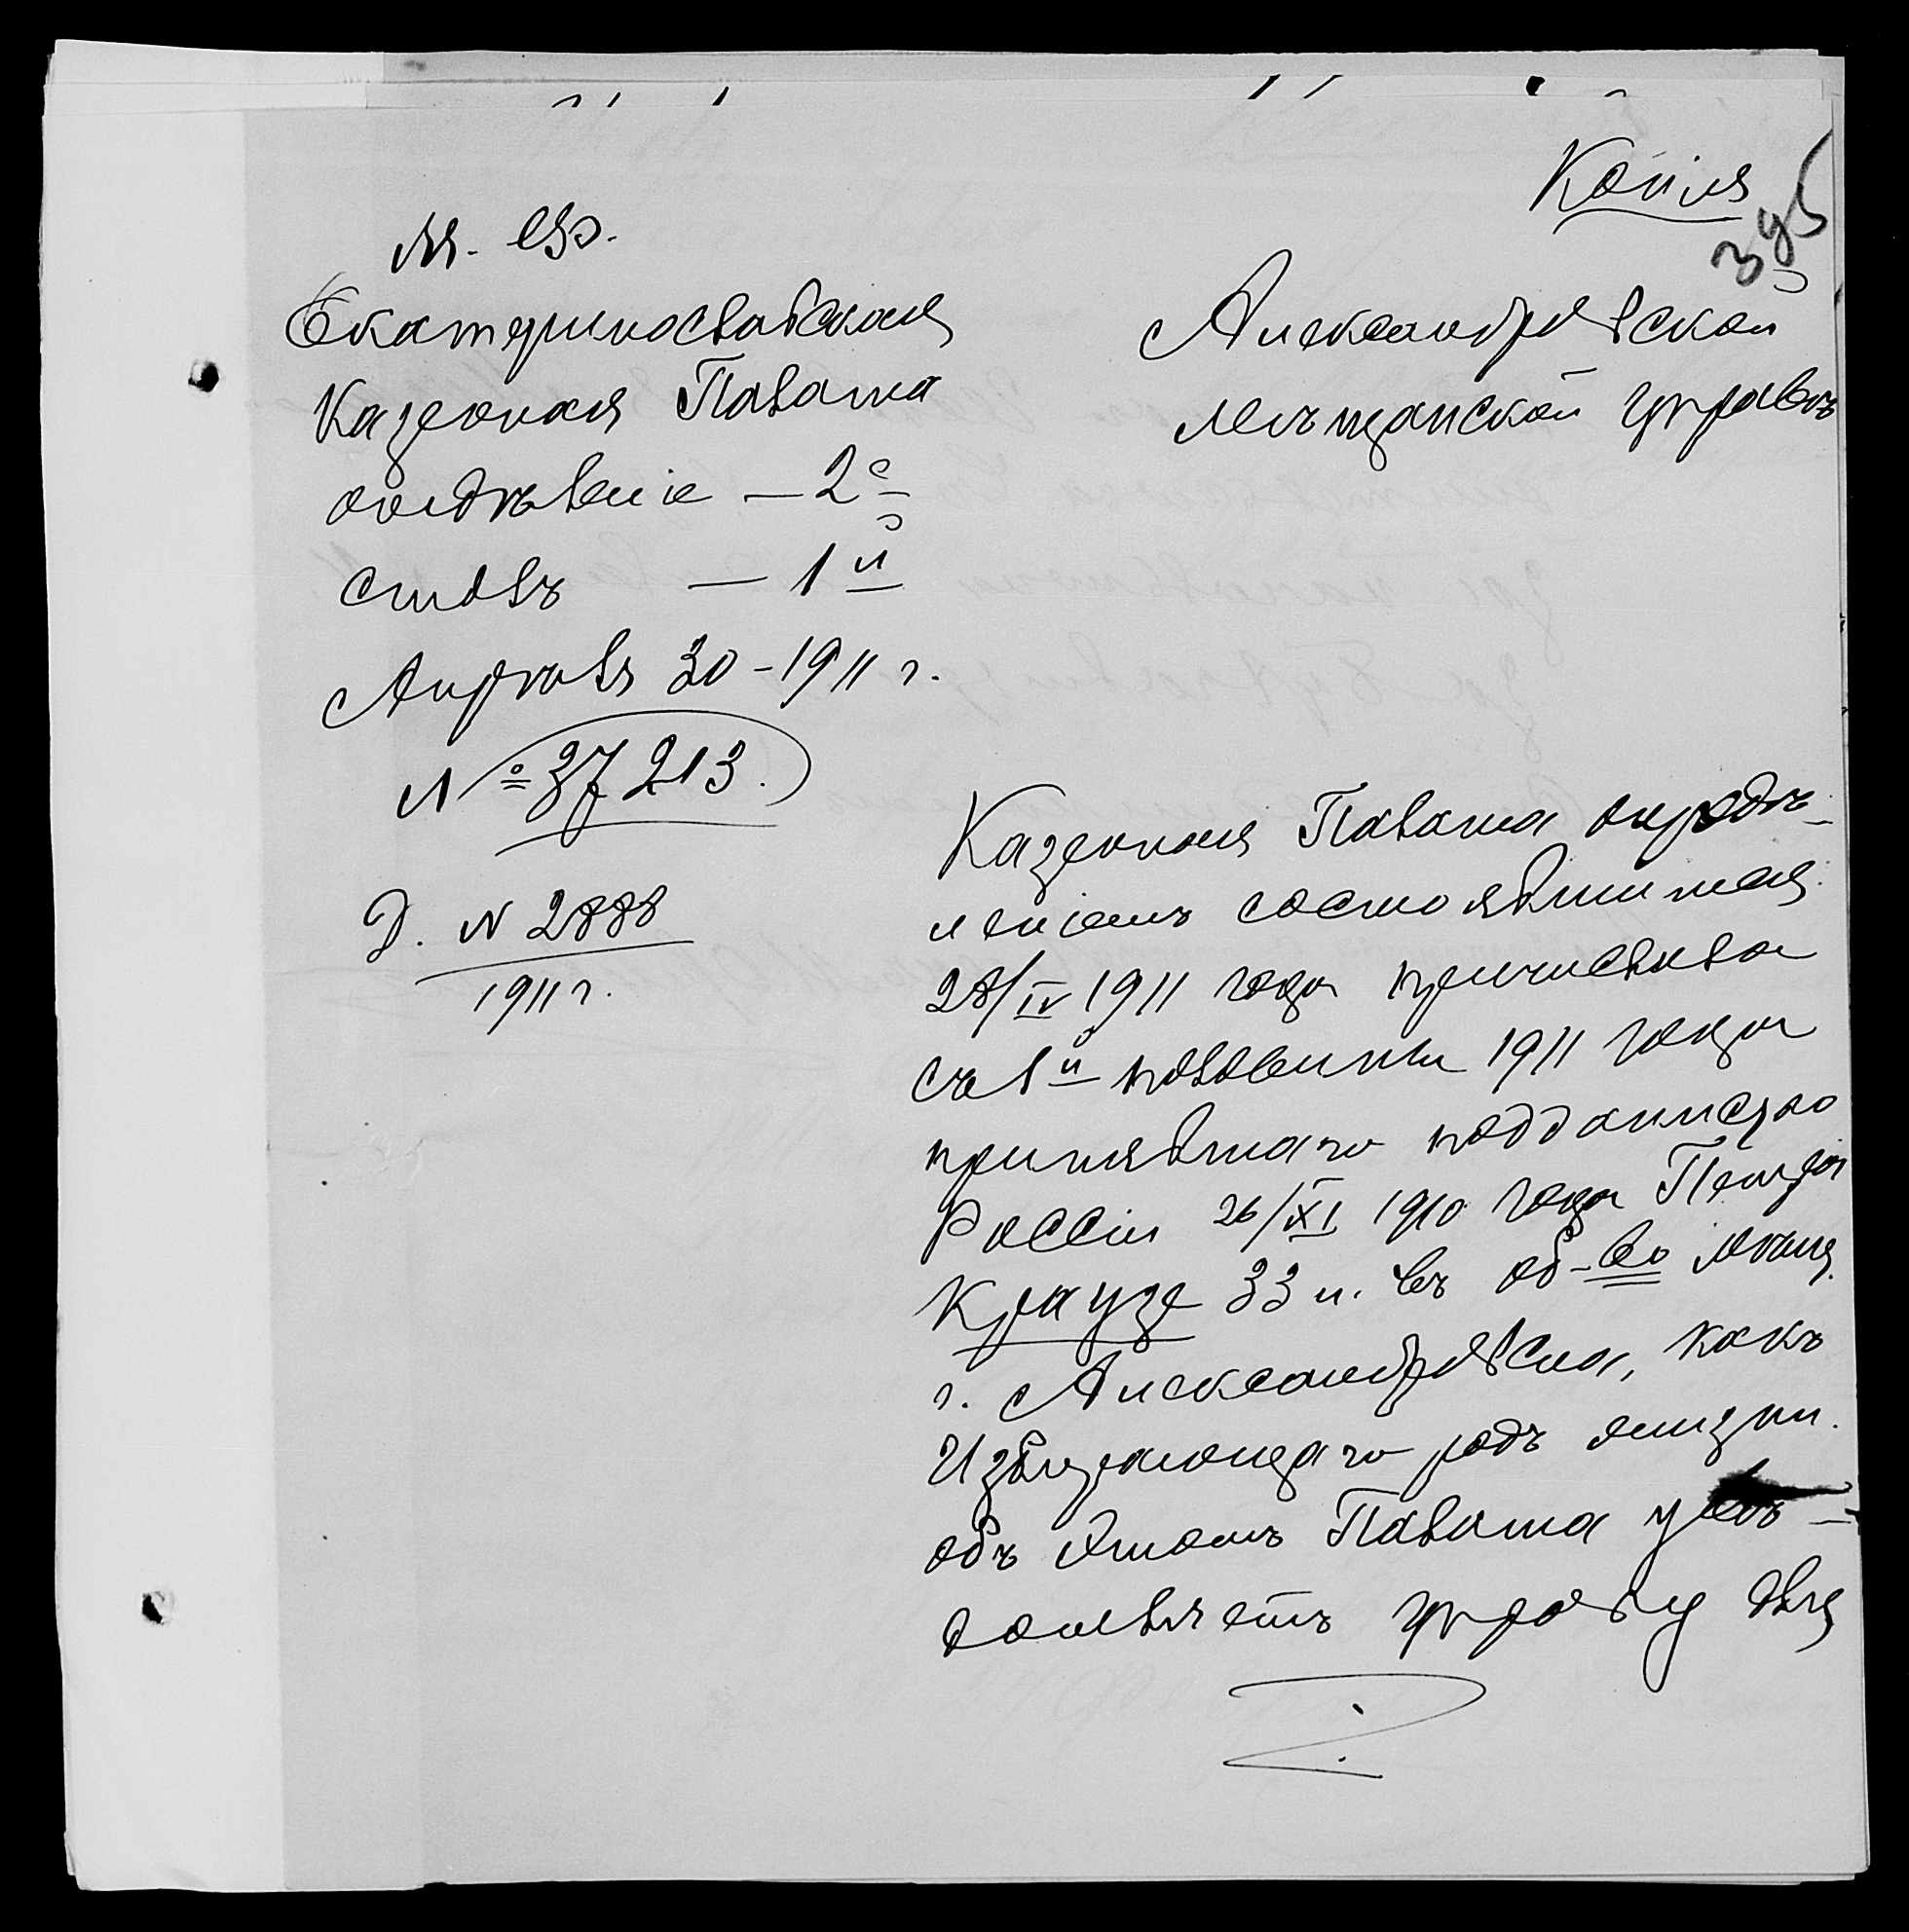 Копія
395
М. Ф.
Екатеринославская
Казенная Палата
отдѣленіе — 2е
столъ — 1й
Апрѣля 30 - 1911 г.
№ 37213.
Д. N 2888
1911 г.
Александровской
мѣщанской управѣ
Казенная Палата опредѣ-
леніемъ состоявшимся
28/IV 1911 года причислила
съ 1й половины 1911 года
принявшаго подданство
Россіи 26/XI 1910 года Петра
Краузе 33 л. въ об-во мѣщ.
г. Александровска, какъ
избирающаго родъ жизни.
объ этомъ Палата увѣ-
домляетъ управу для